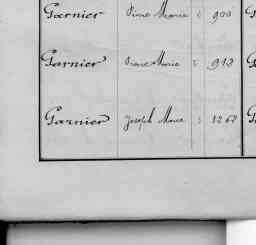 Garnier Pierre Marie : 900
Garnier Pierre Marie : 910
Garnier Joseph Marie : 1260